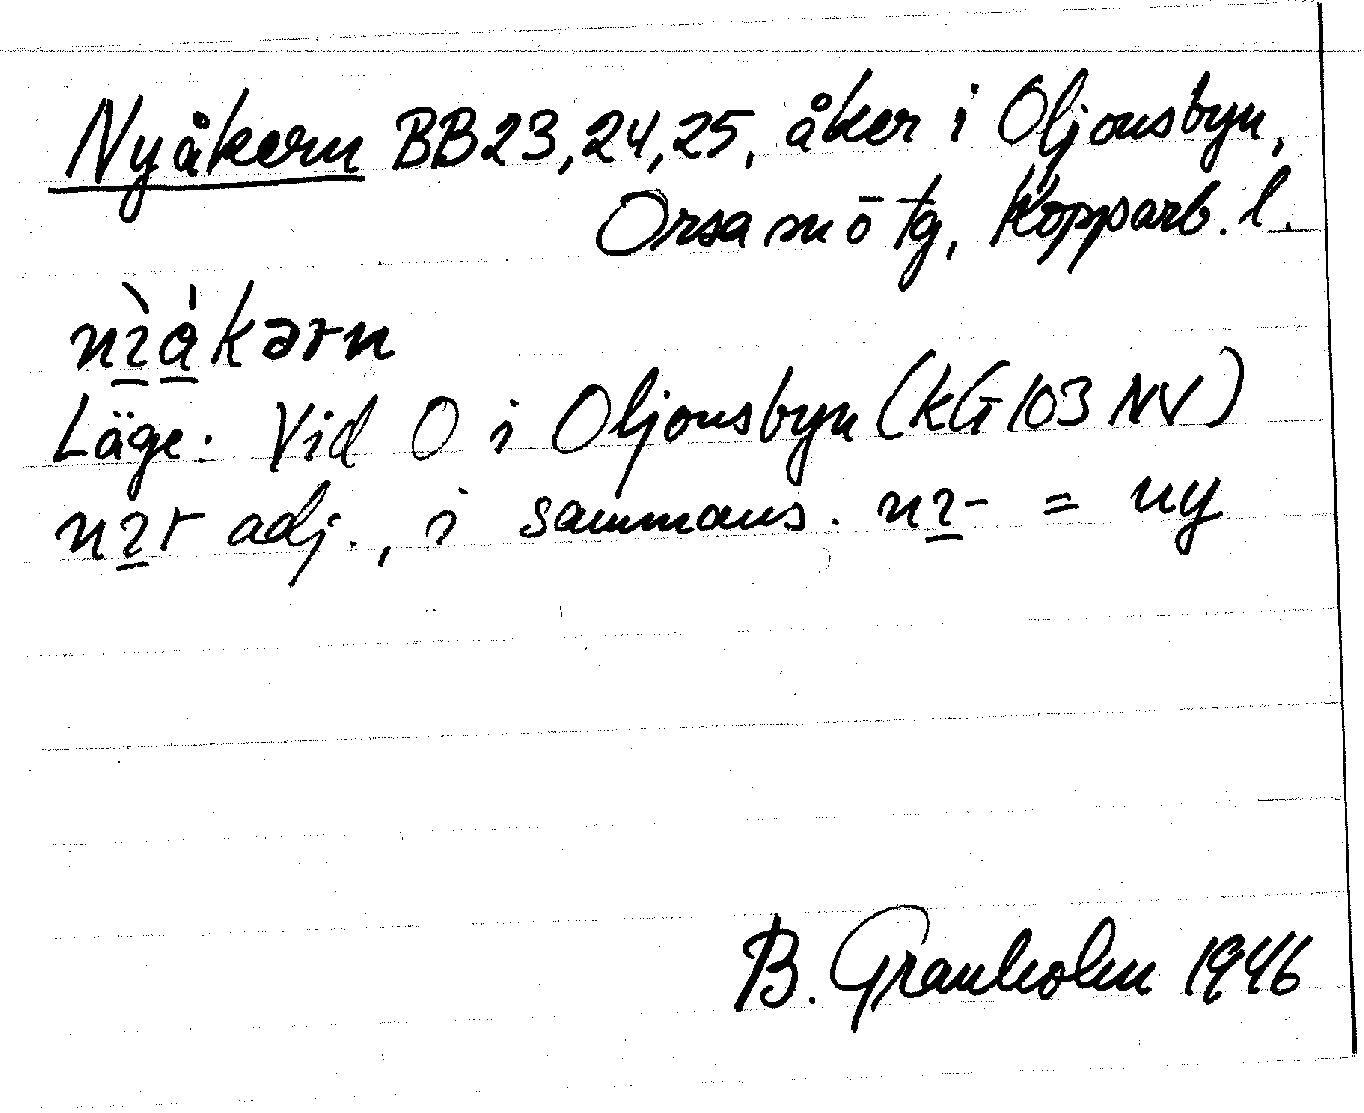 Nyåkern BB23,24,25, åker i Oljonsbyn,
Orsa sn ö tg, Kopparb. l.
Läge: Vid O i Oljonsbyn (kG 103 NV)
adj., i sammans. = ny
B. Granholm 1946